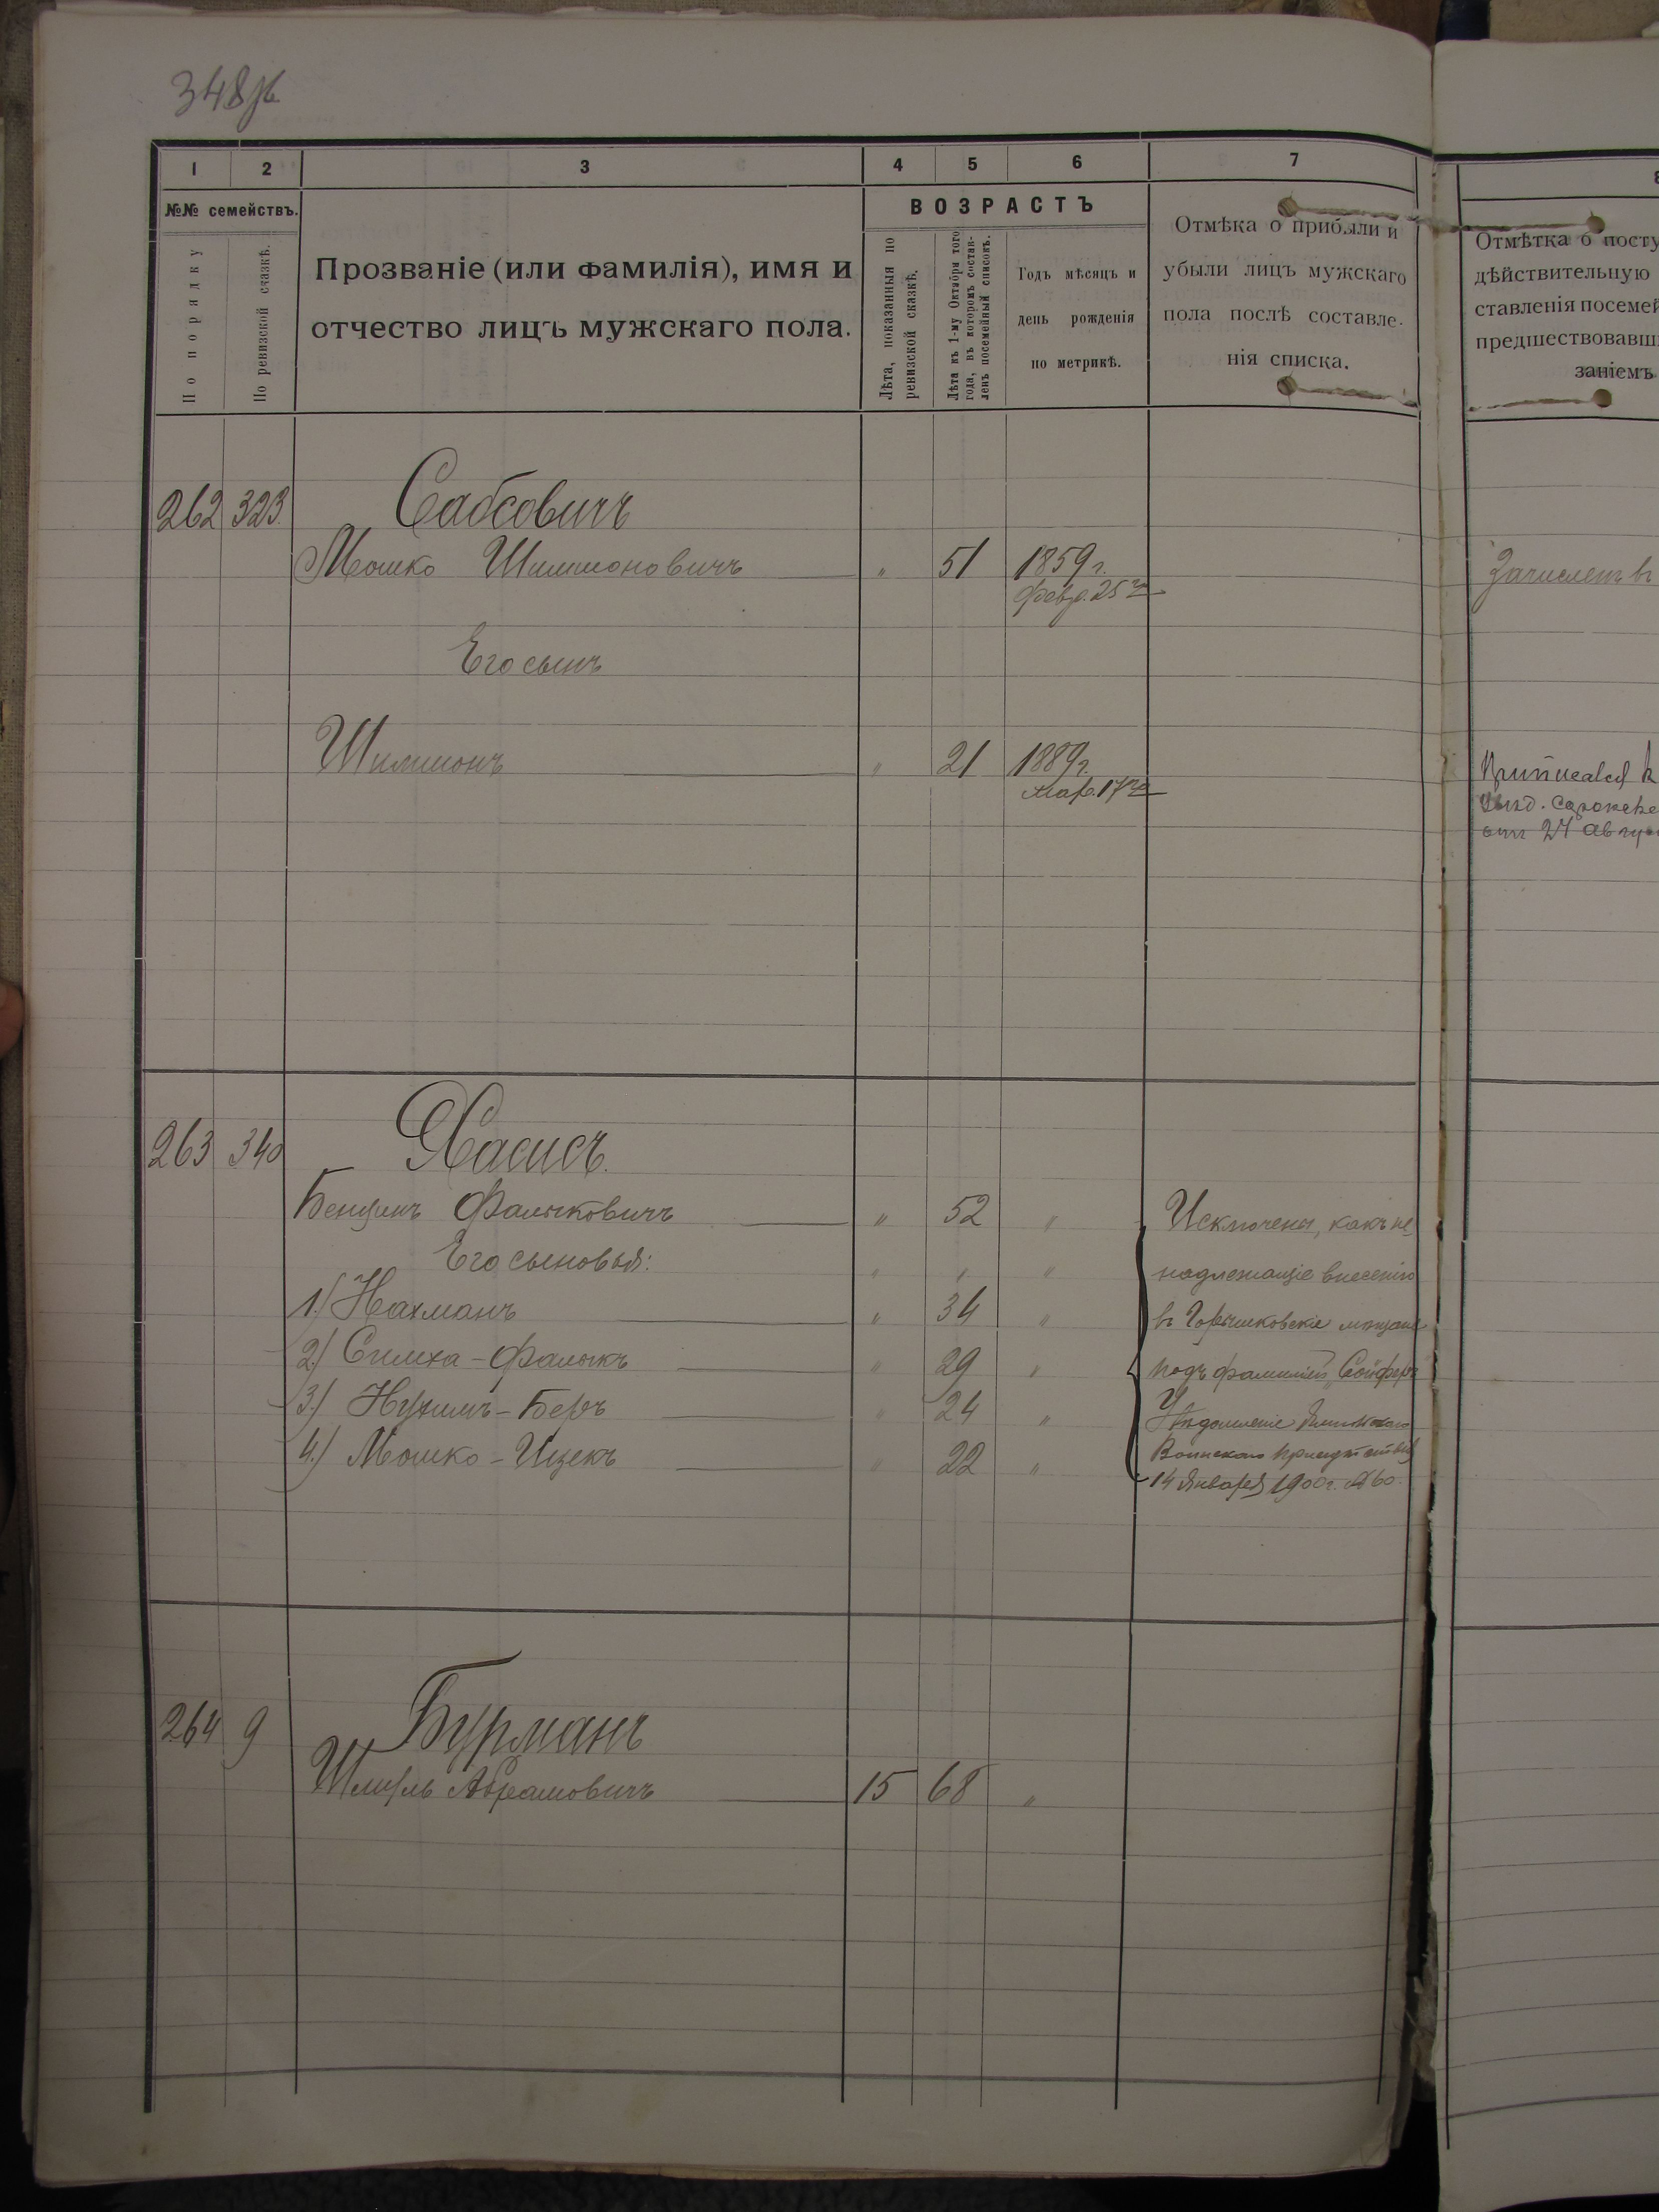 348об
1 2 3 4 5 6 7
№№ семействъ.
По порядку
По ревизской сказкѣ.
Прозваніе (или фамилія), имя и
отчество лицъ мужскаго пола.
ВОЗРАСТЪ
Лѣта, показанныя по
ревизской сказкѣ.
Лѣта къ 1-му Октября того
года, въ которомъ состав-
ленъ посемейный списокъ.
Годъ мѣсяцъ и
день рожденія
по метрикѣ.
Отмѣка о прибыли и
убыли лицъ мужскаго
пола послѣ составле-
нія списка.
262 323 Сабсовичъ
Мошко Шимшоновичъ " 51 1859 г.
Февр. 25
Его сынъ
Шимшонъ " 21 1889 г.
мар. 17
263 340 Хасисъ.
Бенцинъ Фальковичъ " 52 "
Его сыновья: " " "
1.) Нахманъ " 34 "
2.) Симха-Фалькъ " 29 "
3.) Нухимъ-Беръ " 24 "
4.) Мошко-Ицекъ " 22 "
Исключены, какъ не
надлежащіе внесенію
въ мѣщане
подъ фамиліей „Сойферъ
Увѣдомленіе
Воинскаго присутствія
14 Января 1900 г. № 60.
264 9 Бурманъ
Шмуль Абрамовичъ 15 68 "
8
Отмѣтка о посту
дѣйствительную
ставленія посемей
предшествовавш
заніемъ
Зачисленъ въ
отъ 27 авгу